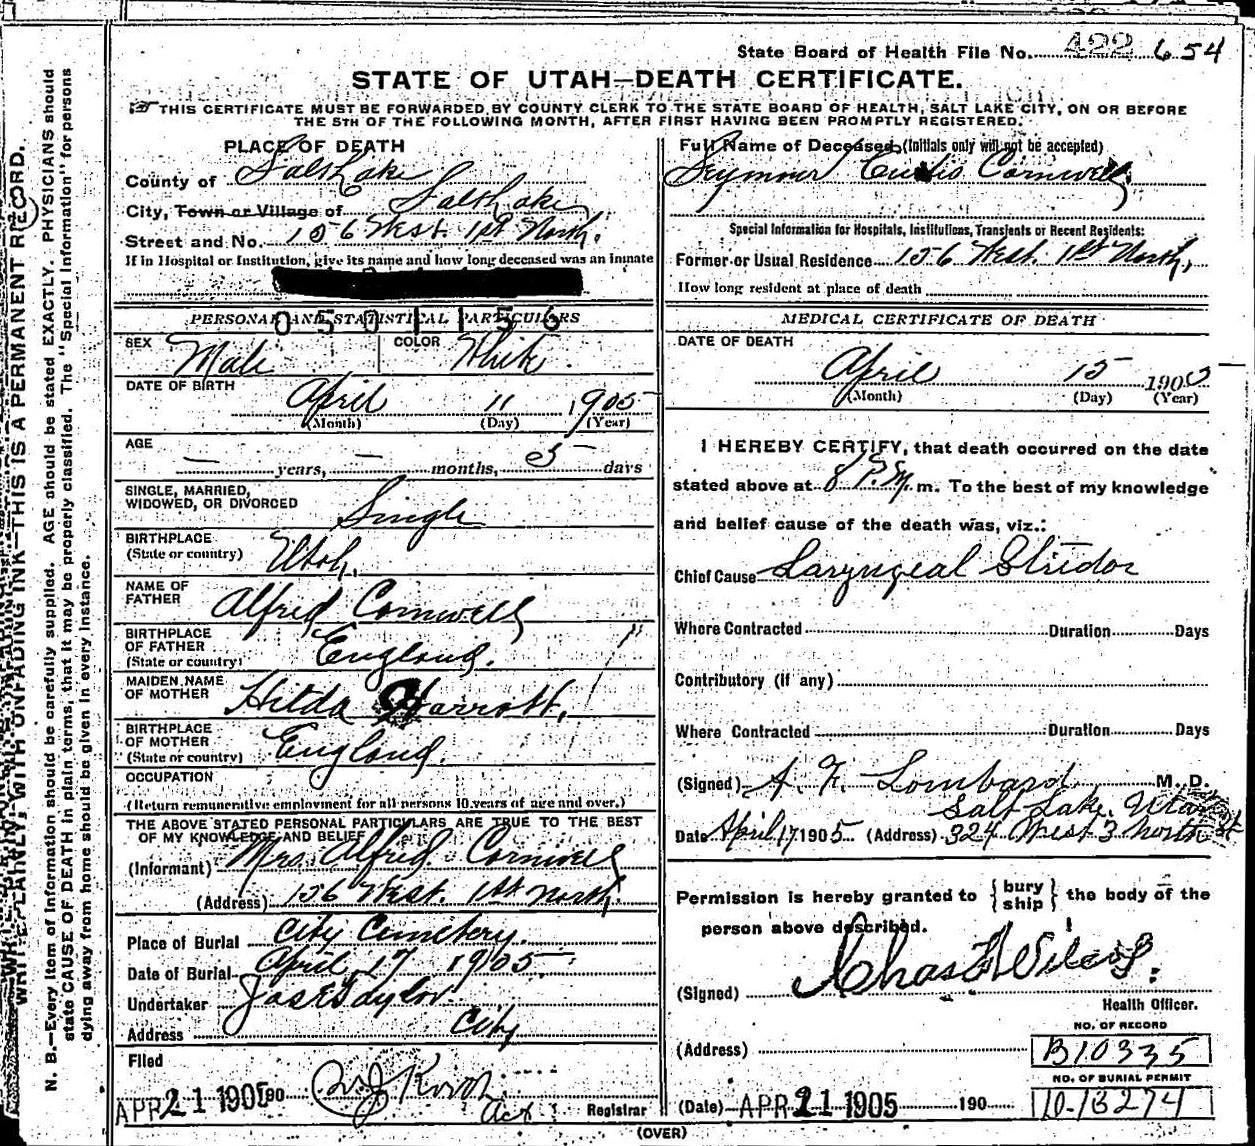 State Board of Health File No. 422 654
STATE OF UTAH—DEATH CERTIFICATE.
THIS CERTIFICATE MUST BE FORWARDED BY COUNTY CLERK TO THE STATE BOARD OF HEALTH, SALT LAKE CITY, ON OR BEFORE
THE 5TH OF THE FOLLOWING MONTH, AFTER FIRST HAVING BEEN PROMPTLY REGISTERED.
WRITE PLAINLY, WITH UNFADING INK—THIS IS A PERMANENT RECORD.
N. B.—Every item of information should be carefully supplied. AGE should be stated EXACTLY. PHYSICIANS should
state CAUSE OF DEATH in plain terms, that it may be properly classified. The "Special Information" for persons
dying away from home should be given in every instance.
PLACE OF DEATH
County of Salt Lake
City, Town or Village of Salt Lake
Street and No. 156 West 1st North.
If in Hospital or Institution, give its name and how long deceased was an inmate
0501156
PERSONAL AND STATISTICAL PARTICULARS
SEX Male COLOR White
DATE OF BIRTH
April 11 1905
(Month) (Day) (Year)
AGE
— years, — months, 5 days
SINGLE, MARRIED,
WIDOWED, OR DIVORCED Single
BIRTHPLACE
(State or country) Utah.
NAME OF
FATHER Alfred Cornwell
BIRTHPLACE
OF FATHER
(State or country) England.
MAIDEN NAME
OF MOTHER Hilda Harrott.
BIRTHPLACE
OF MOTHER
(State or country) England.
OCCUPATION
(Return remunerative employment for all persons 10 years of age and over.)
THE ABOVE STATED PERSONAL PARTICULARS ARE TRUE TO THE BEST
OF MY KNOWLEDGE AND BELIEF
(Informant) Mrs. Alfred Cornwell
(Address) 156 West. 1st North.
Place of Burial City Cemetery.
Date of Burial April 17 1905
Undertaker Jos E Taylor
Address City
Filed
APR 21 1905 190 Act. Registrar
Full Name of Deceased (Initials only will not be accepted)
Seymour Curtis Cornwell
Special Information for Hospitals, Institutions, Transients or Recent Residents:
Former or Usual Residence 156 West. 1st North,
How long resident at place of death
MEDICAL CERTIFICATE OF DEATH
DATE OF DEATH
April 15 1905
(Month) (Day) (Year)
I HEREBY CERTIFY, that death occurred on the date
stated above at 8 P.M. m. To the best of my knowledge
and belief cause of the death was, viz.:
Chief Cause Laryngeal Stridor
Where Contracted Duration Days
Contributory (if any)
Where Contracted Duration Days
(Signed) A. F. Lombard M. D.
Salt Lake, Utah
Date April 17 1905 (Address) 324 West 3 North St
Permission is hereby granted to {bury ship} the body of the
person above described.
(Signed) Chas F Wilcox.
Health Officer.
NO. OF RECORD
(Address) B10335
NO. OF BURIAL PERMIT
(Date) APR 21 1905 190 10-13274
(OVER)